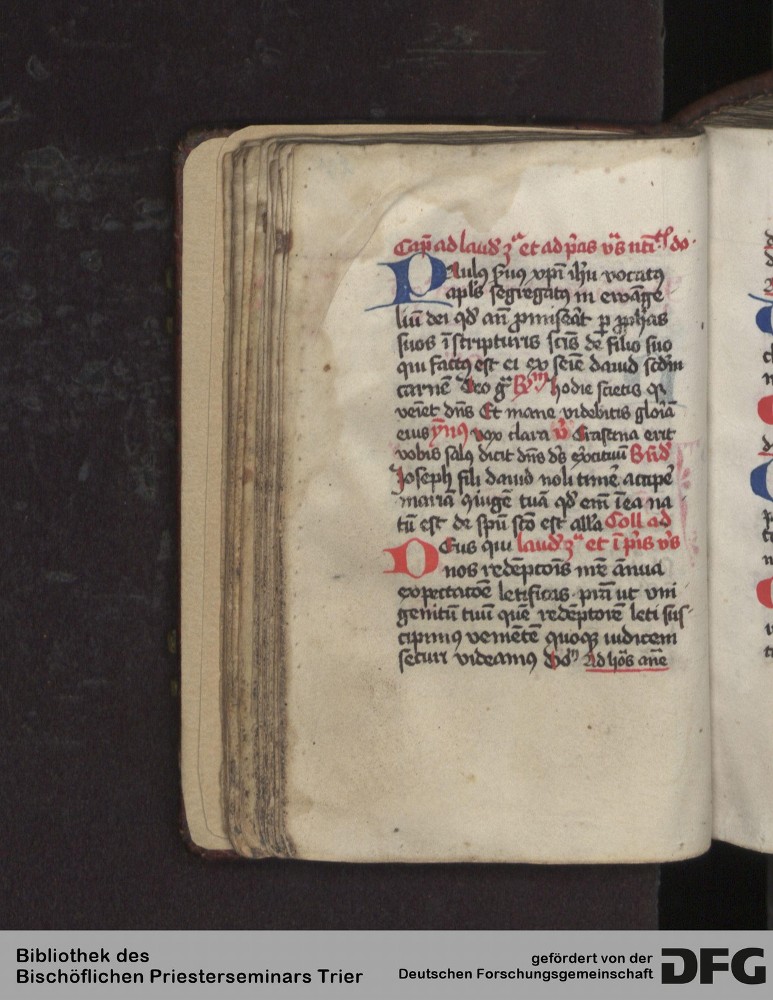 Cap̄ ad laud̄ ꝫᵃ et ad p̄as vꝰs nt̄i do
Paulꝰ ẜuꝰ xp̄i ih̄u vocatꝰ
apl̄s segregatꝰ in ewāge
liū dei qd̄ an̄ ꝓmiserāt ꝑ ꝓph̄as
suos ī scripturis sc̄is de filio suo
qui factꝰ est ei ex seīe dauid sc̄dm
carnē Deo gᵃ hodie scietis qꝛ
veīet dn̄s Et mane videbitis gloīā
eius ẏnꝰ vox clara v̄ Crastina erit
vobis salꝰ dicit dn̄s dꝰ exercituū Bn̄d
Joseph fili dauid noli timē accipē
mariā ꝯiugē tuā qd̄ em̄ ī ea na
tū est de spū sc̄o est all̄a Coll ad
Deus qui laud̄ ꝫᵃ et ī p̄is vꝰs
nos redēptōis nr̄e ānua
expectacōe letificas p̄ra ut vni
genitū tuū quē redēptorē leti sus
cipimꝰ venīetē quoqꝫ iudicem
securi videamꝰ Ad hōs an̄e
Bibliothek des
Bischöflichen Priesterseminars Trier
gefördert von der
Deutschen Forschungsgemeinschaft
DFG